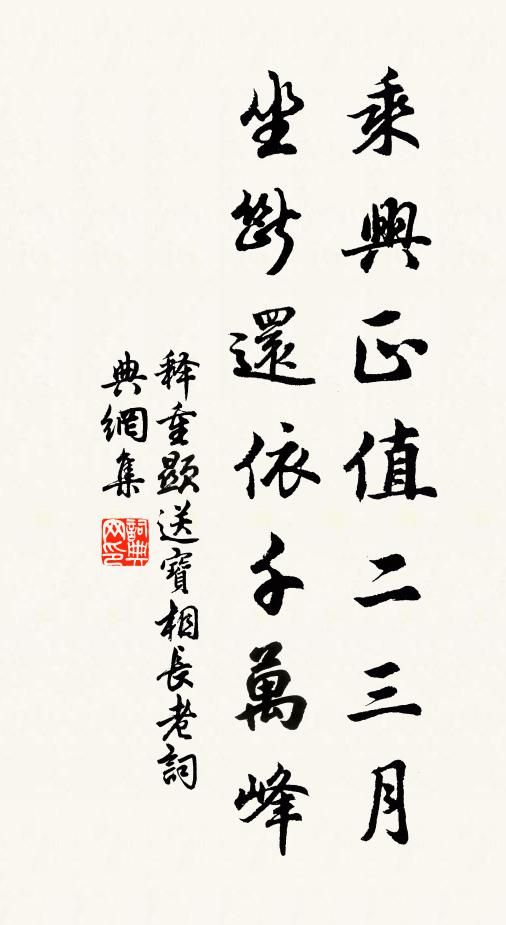 乘興正值二三月
坐斷還依千萬峰
釋重顯送寶相長老詞
典網集
詞典网印